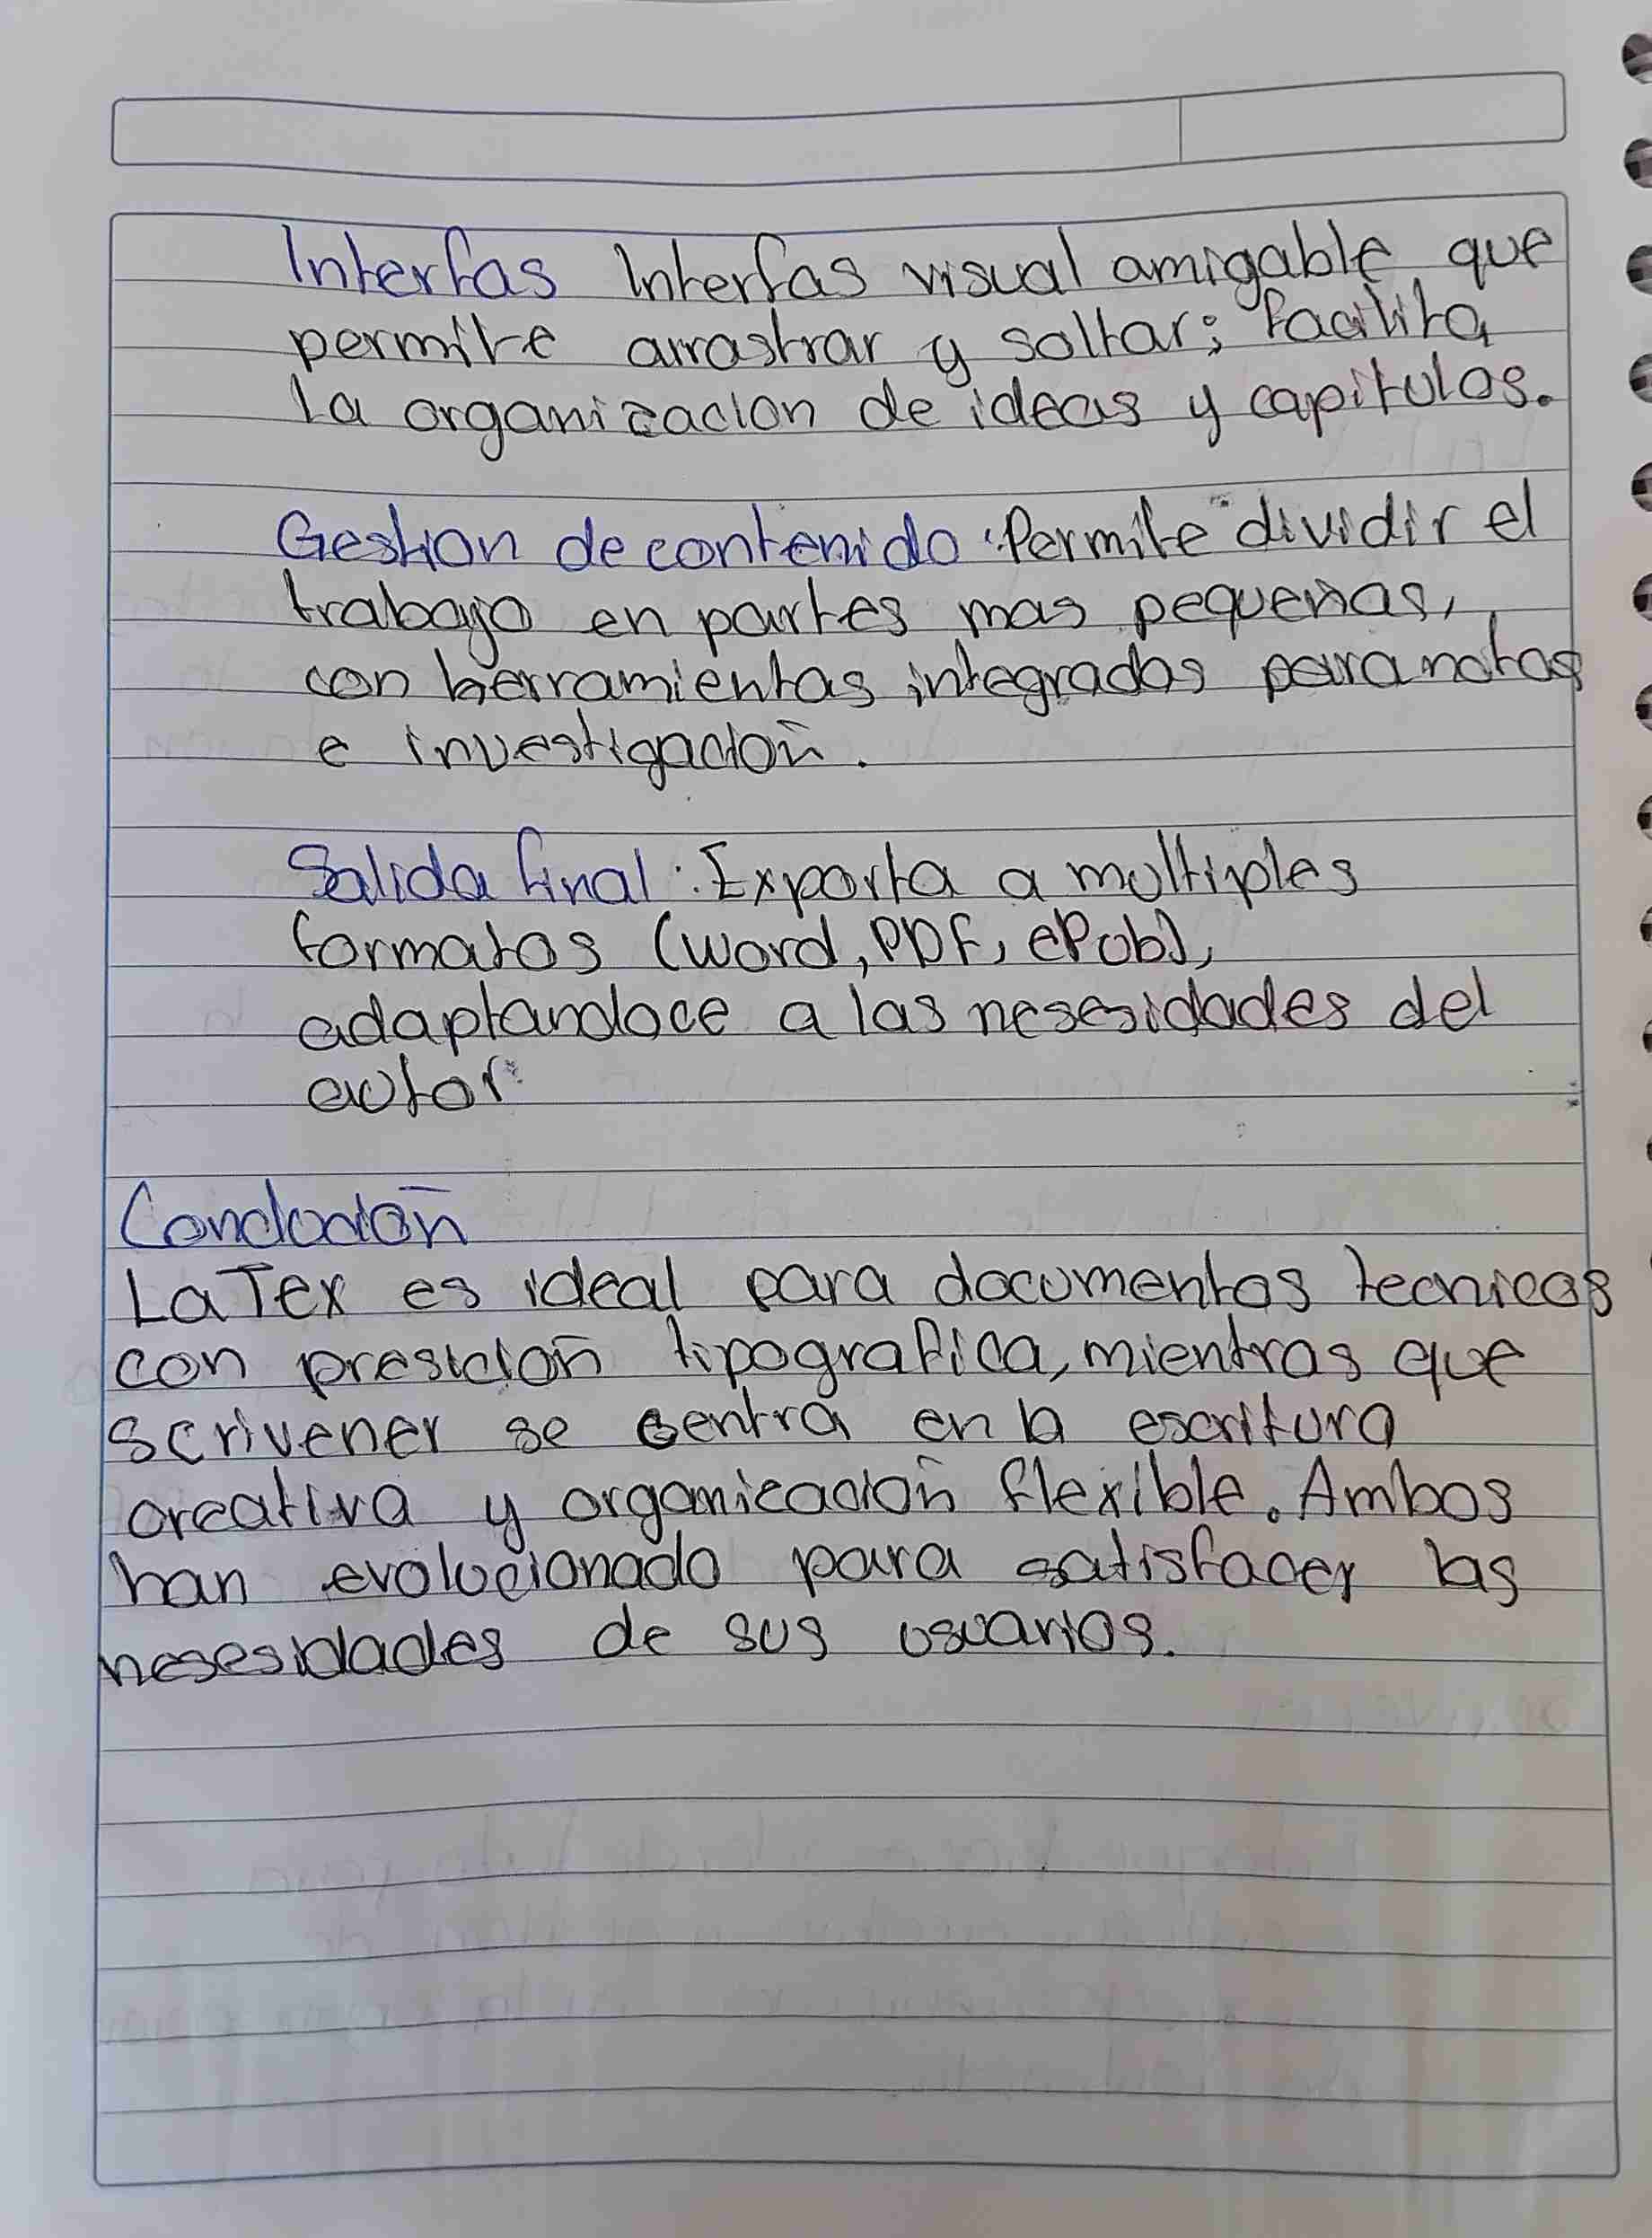 Interfas Interfas visual amigable, que
permite arrastrar y soltar; facilita
la organizacion de ideas y capitulos.
Gestion de contenido: Permite dividir el
trabajo en partes mas pequeñas,
con herramientas integradas para notas
e investigación.
Salida final: Exporta a multiples
formatos (word, PDF, ePub),
adaptandoce a las nesesidades del
autor
Conclución
LaTex es ideal para documentos tecnicos
con presición tipografica, mientras que
scrivener se centra en la escritura
creativa y organización flexible. Ambos
han evolucionado para satisfacer las
nesesidades de sus usuarios.